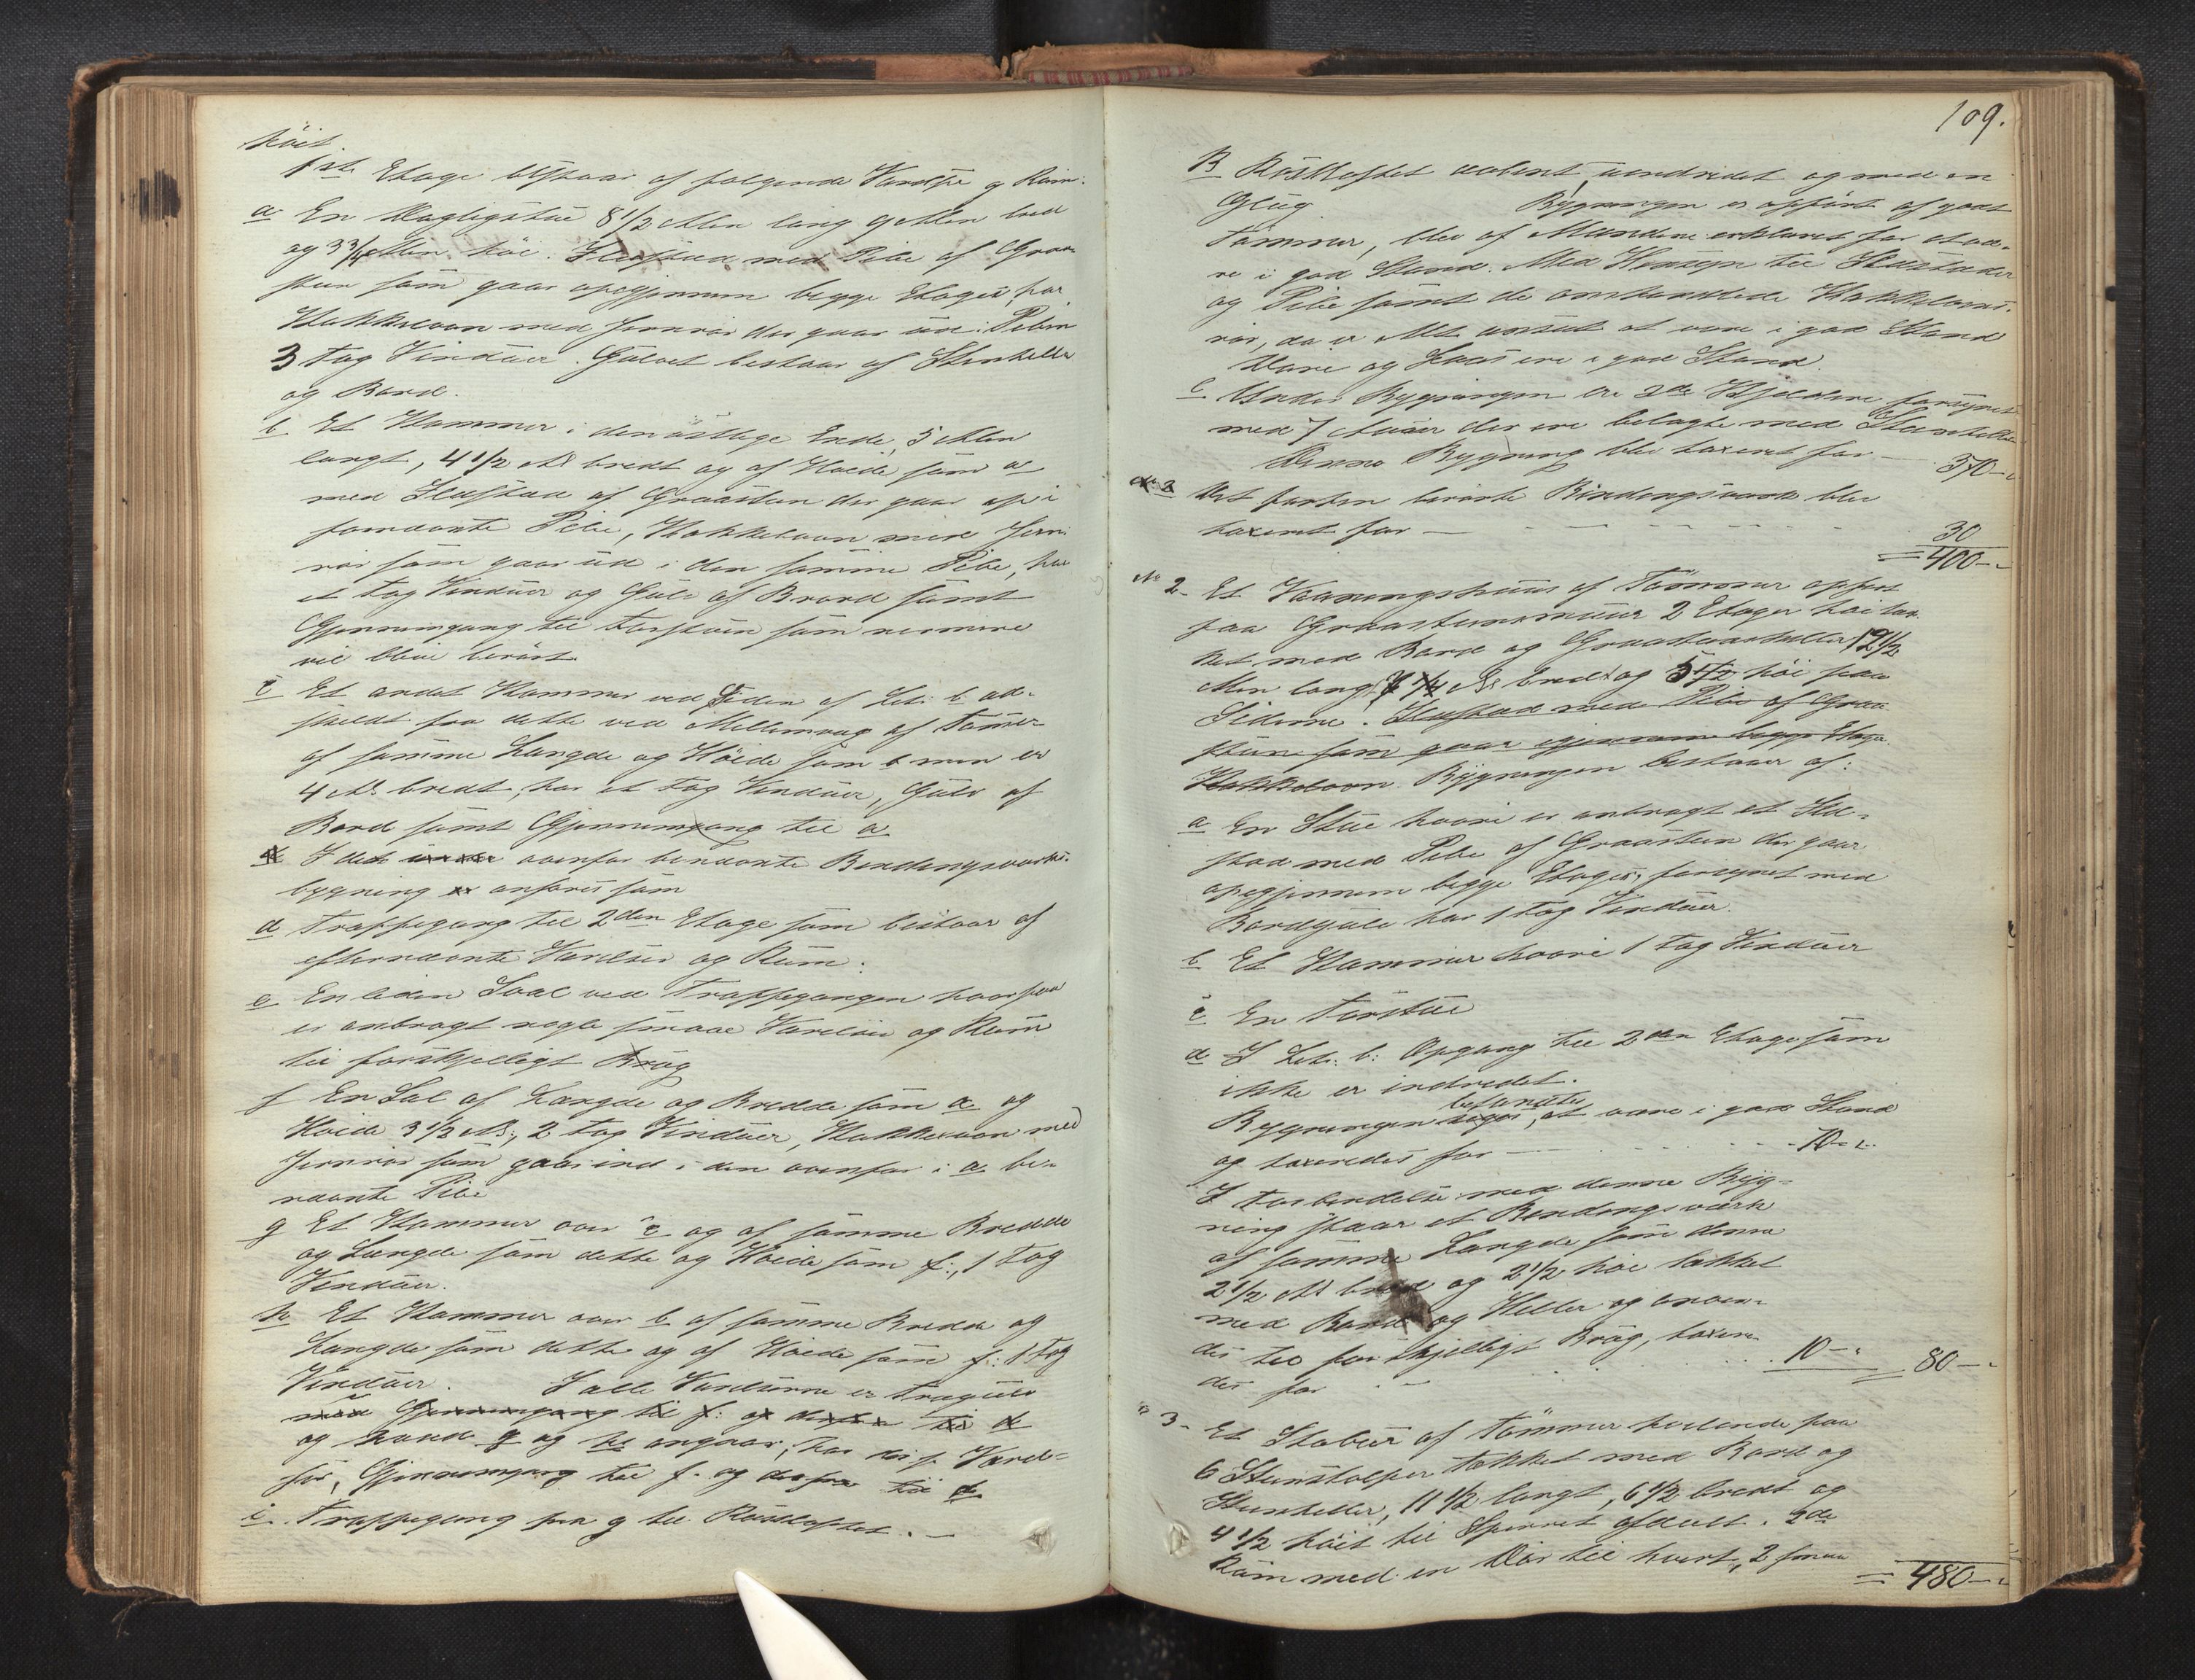 høit.
1ste Etage bestaar af følgende Værelser og Rum:
a En Dagligstue 8 1/2 Alen lang 9 Alen bred
og 3 3/4 Alen høi. Ildsted med Pibe af Graa-
steen som gaar opigjennem begge Etager, har
Kakkelovn med Jernrør der gaar ud i Piben
3 Fag Vinduer. Gulvet bestaar af Steenheller
og Bord.
b Et Kammer i den østlige Ende, 5 Alen
langt, 4 1/2 Al. bredt og af Høide som a
med Ildsted af Graasteen der gaar op i
fornævnte Pibe, Kakkelovn med Jern-
rør som gaar ud i den samme Pibe, har
et Fag Vinduer og Gulv af Bord samt
Gjennemgang til Forstuen som nærmere
vil blive berørt.
c Et andet Kammer ved Siden af Lit: b ad-
skildt fra dette ved Mellemvæg af Tømmer
af samme Længde og Høide som b men er
4 Al. bredt, har et Fag Vinduer, Gulv af
Bord samt Gjennemgang til a
I det ovenfor benævnte Bindingsværks-
bygning anføres som
d Trappegang til 2den Etage som bestaar af
efternævnte Værelser og Rum:
e En liden Sval ved Trappegangen hvorpaa
er anbragt nogle smaae Værelser og Rum
til forskjelligt Brug
f En Sal af Længde og Bredde som a og
Høide 3 1/2 Al., 2 Fag Vinduer, Kakkelovn med
Jernrør som gaar ind i den ovenfor i a be-
nævnte Pibe
g Et Kammer over c og af samme Bredde
og Længde som dette og Høide som f:, 1 Fag
Vinduer.
h Et Kammer over b af samme Bredde og
Længde som dette og af Høide som f: 1 Fag
Vinduer. I alle Værelserne er Trægulv
med Gjennemgang til f: og derfra til d
og hvad g og h angaar, har disse Værel-
ser, Gjennemgang til f. og derfra til d
i Trappegang fra g til Røstloftet. —
109.
B Røstloftet aabent, uindredet og med en
Glug. Bygningen er opført af godt
Tømmer, blev af Mændene erklæret for at væ-
re i god Stand. Med Hensyn til Ildsteder
og Pibe samt de omhandlede Kakkelovns-
rør, da er Alt anseet at være i god Stand
Døre og Laase ere i god Stand.
C Under Bygningen ere 2de Kjeldere forsynet
med Muur der ere belagte med Steenheller
Denne Bygning blev taxeret for — 370 —
No 2 Det forhen berørte Bindingsværk blev
taxeret for — 30
= 400 —
No 2- Et Vaaningshuus af Tømmer opført
paa Graasteensmuur 2 Etager høi tæk-
ket med Bord og Graasteensheller 12 1/2
Alen lang, 7 1/4 Al. bred og 5 1/2 høi paa
Siderne. Ildsted med Pibe af Graa-
steen som gaar igjennem begge Etager
Kakkelovn. Bygningen bestaar af:
a En Stue hvori er anbragt et Ild-
sted med Pibe af Graasteen der gaar
opigjennem begge Etager, forsynet med
Bordgulv har 1 Fag Vinduer.
b Et Kammer hvori 1 Fag Vinduer
c En Forstue
d I Lit: b: Opgang til 2den Etage som
ikke er indredet.
Bygningen befandtes at være i god Stand
og taxeredes for — 70 —
I Forbindelse med denne Byg-
ning staar et Bindingsværk
af samme Længde som denne
2 1/2 Al. bred og 2 1/2 høi tækket
med Bord og Heller og anven-
des til forskjelligt Brug, taxere-
des for 10 — 80 —
" 3- Et Stabuur af Tømmer hvilende paa
6 Steenstolper tækket med Bord og
Steenheller, 11 1/2 langt, 6 1/2 bredt og
4 1/2 høit til Sperret afdeelt i 2de
Rum med en Dør til hvert, 2 smaa
= 480 —